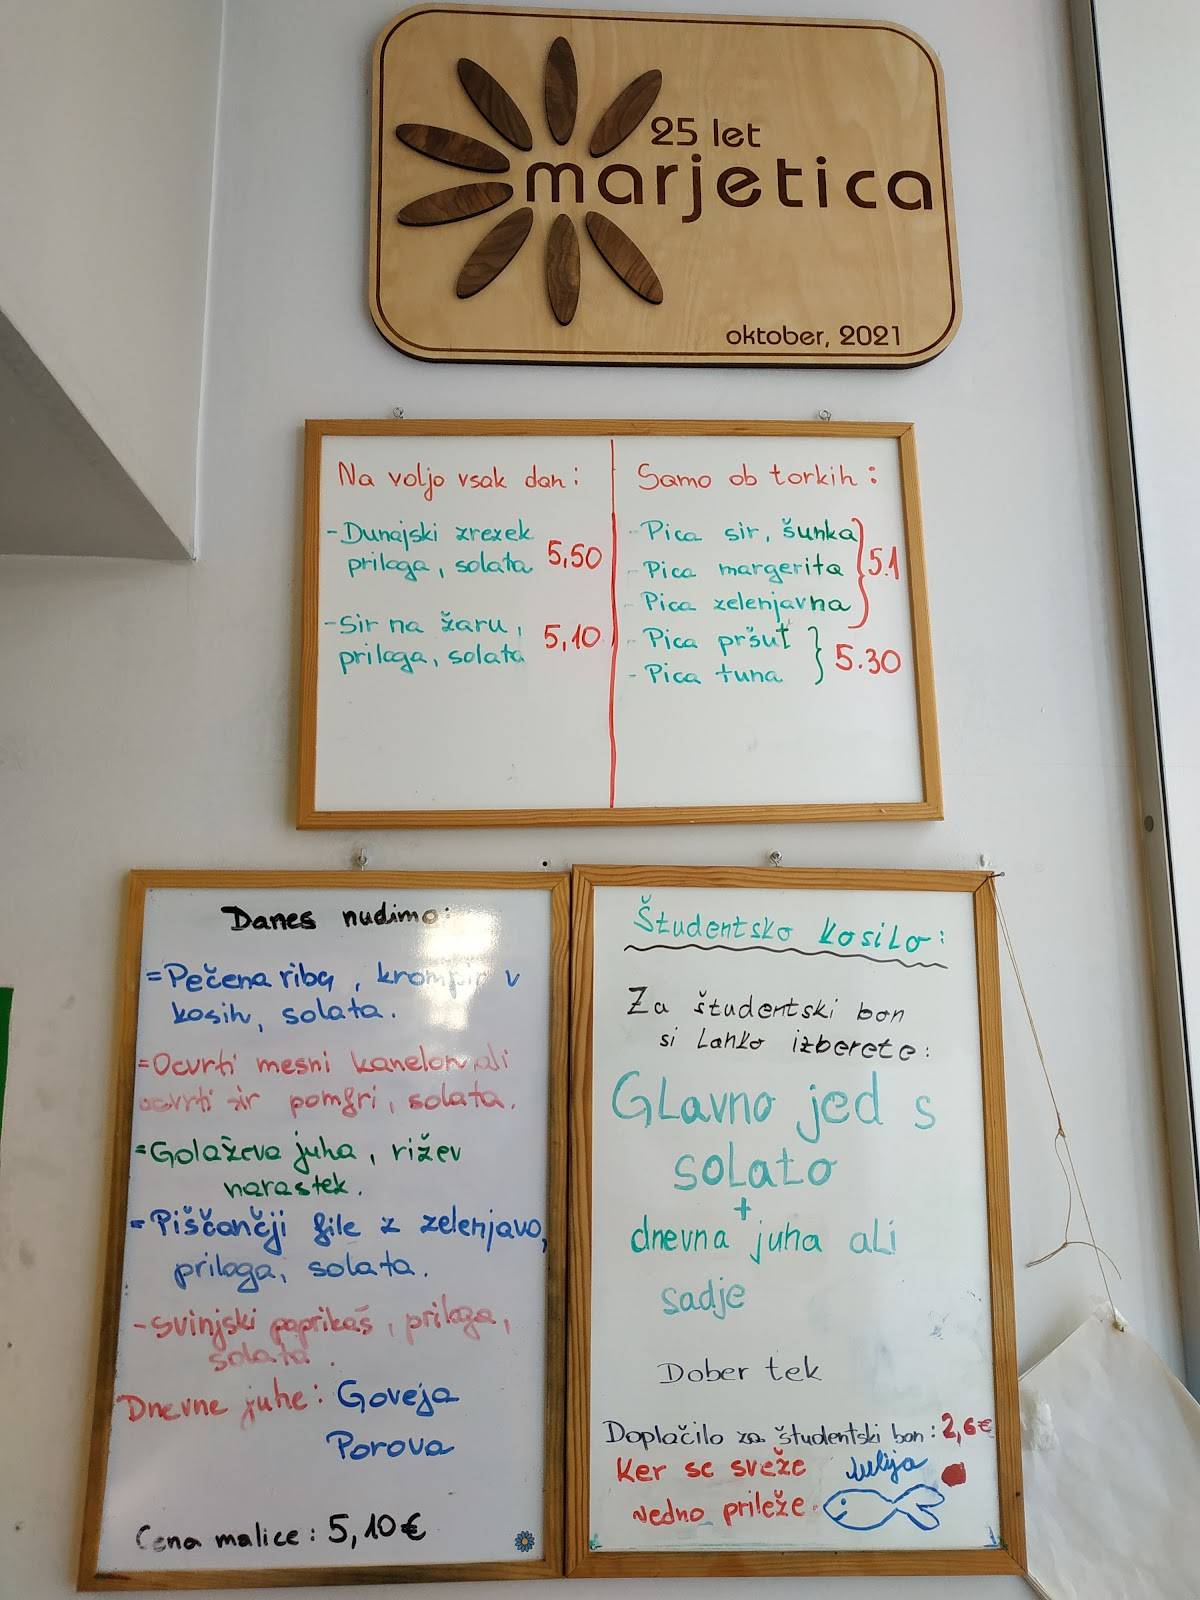 25 let
marjetica
oktober, 2021
Na voljo vsak dan:
- Dunajski zrezek
priloga, solata 5,50
- Sir na žaru,
priloga, solata 5,10
Samo ob torkih:
- Pica sir, šunka
- Pica margerita
- Pica zelenjavna
5.1
- Pica pršut
- Pica tuna
5.30
Danes nudimo:
= Pečena riba, krompir v
kosih, solata.
= Ocvrti mesni kaneloni ali
ocvrti sir pomfri, solata.
= Golaževa juha, rižev
narastek.
= Piščančji file z zelenjavo,
priloga, solata.
- Svinjski paprikaš, priloga,
solata.
Dnevne juhe: Goveja
Porova
Cena malice: 5,10€
Študentsko kosilo:
Za študentski bon
si lahko izberete:
Glavno jed s
solato
+
dnevna juha ali
sadje
Dober tek
Doplačilo za študentski bon: 2,6€
Ker se sveže
vedno prileže.